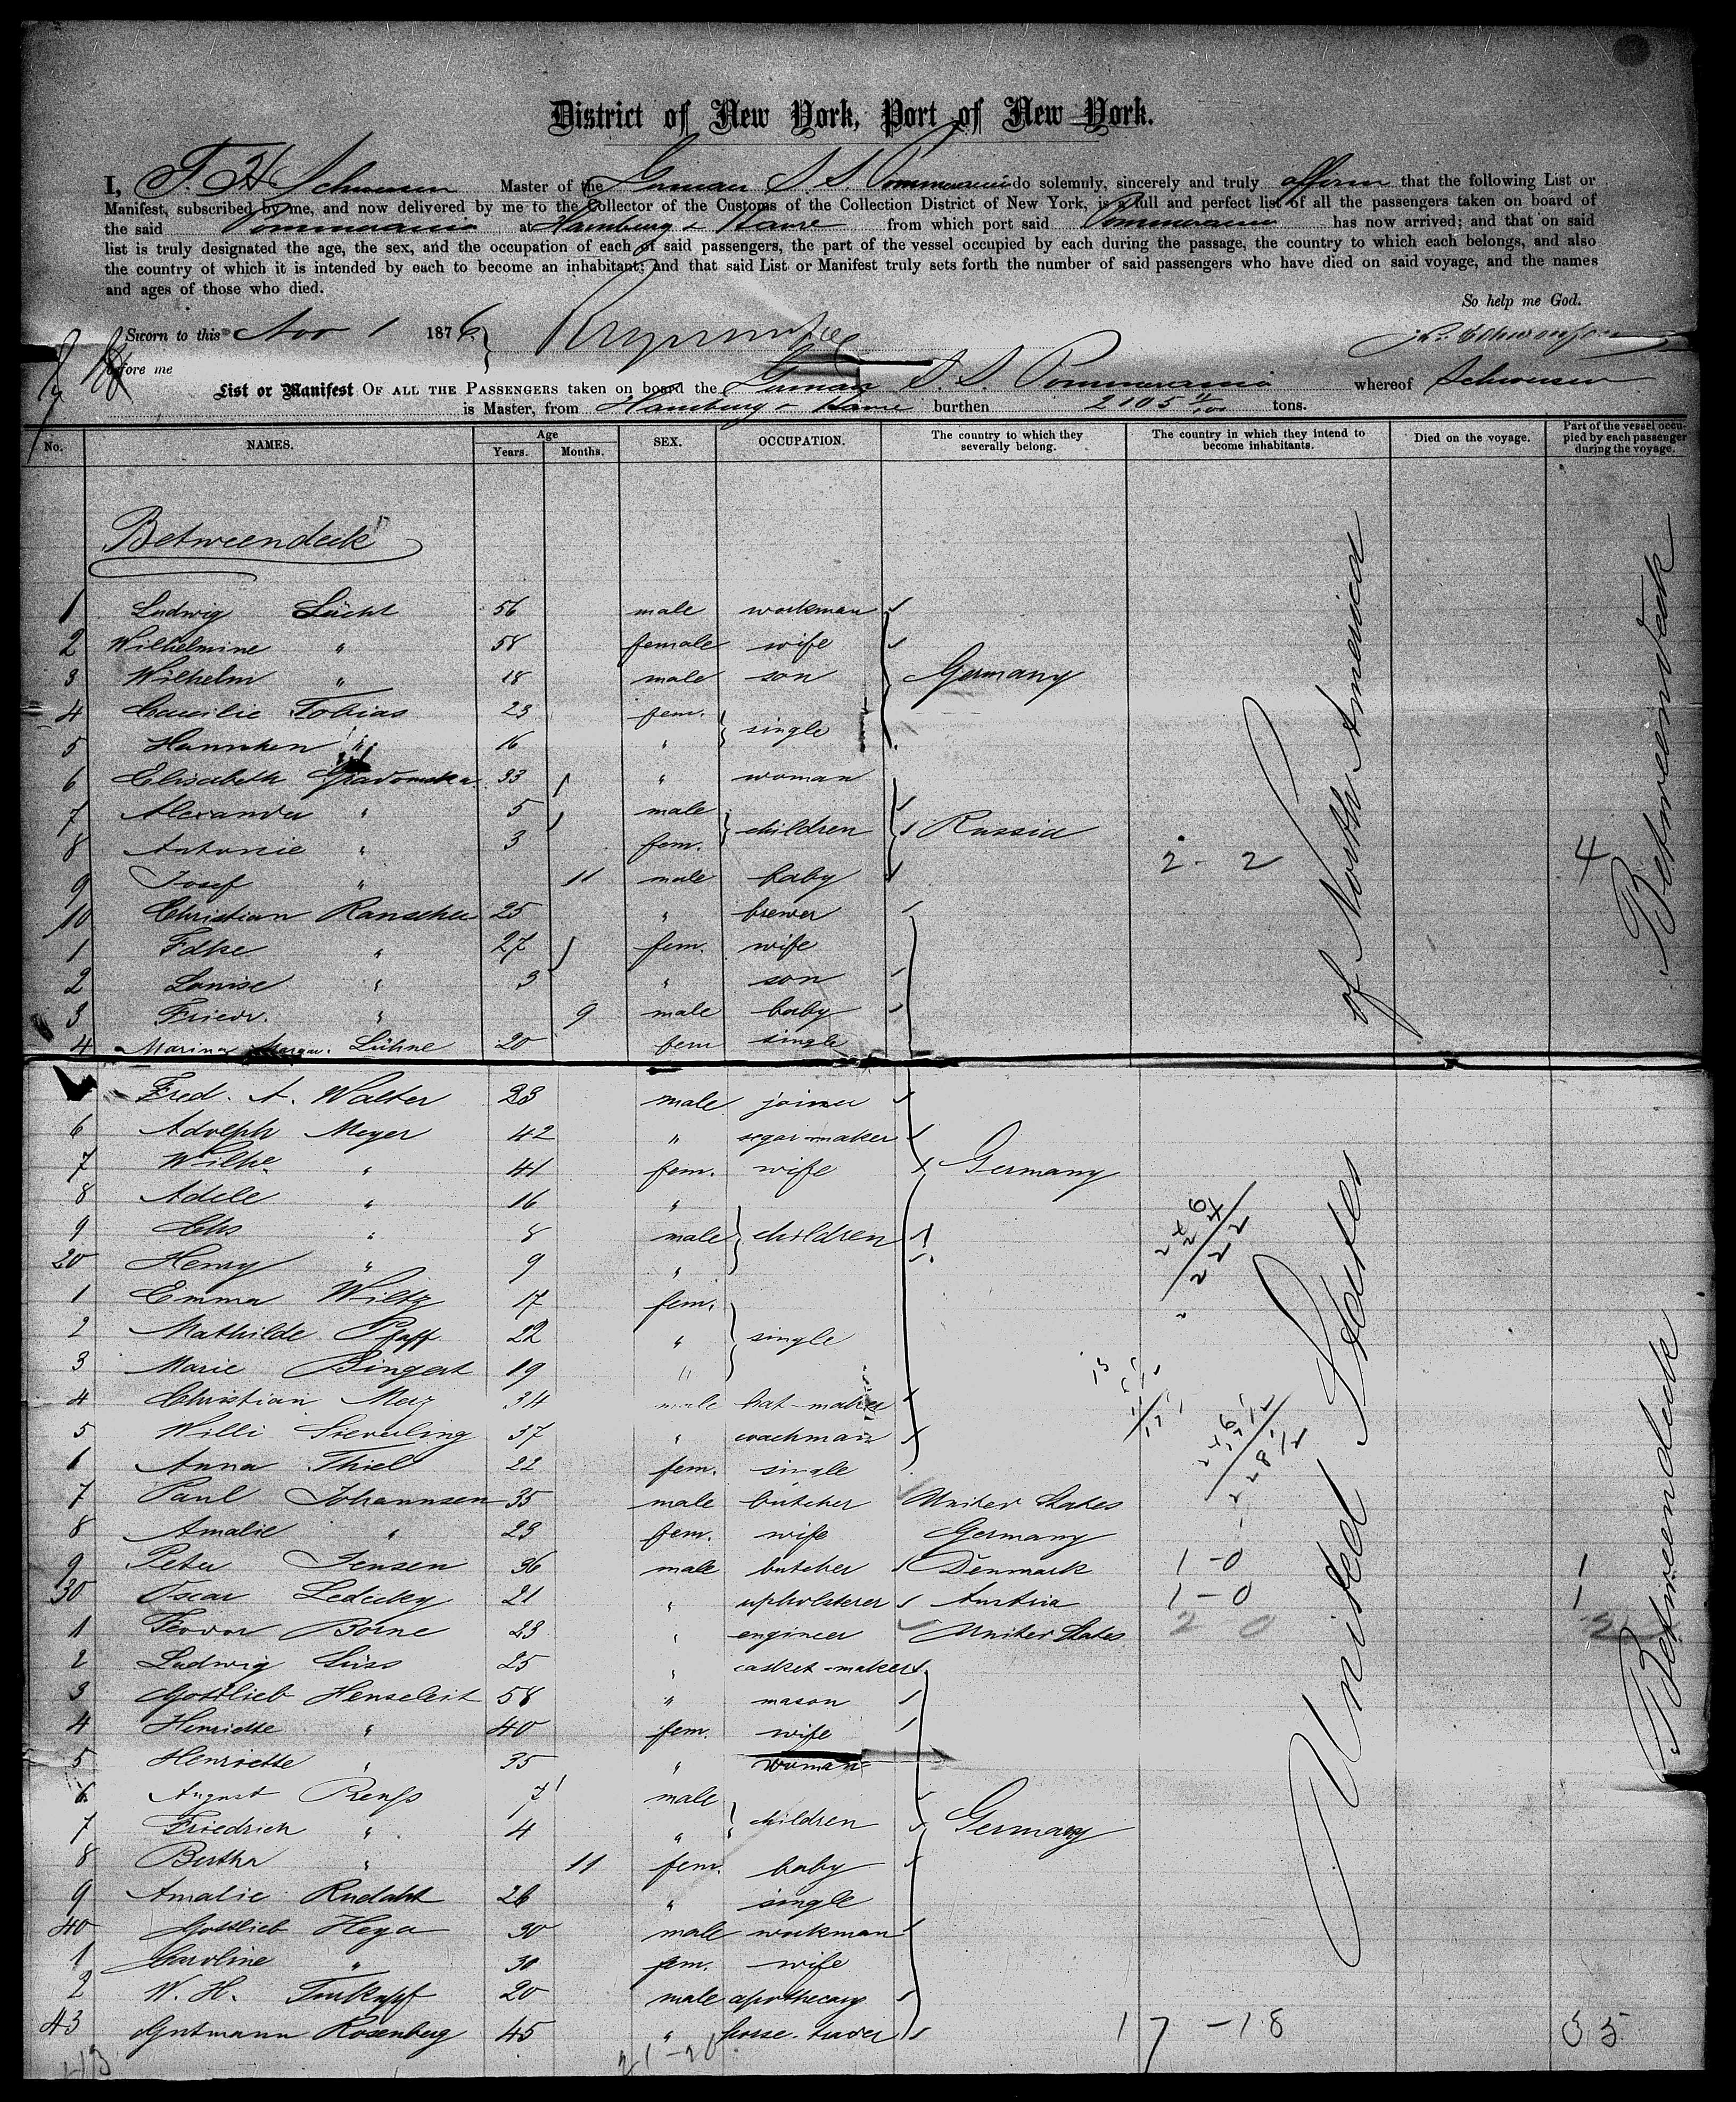 District of New York, Port of New York.
I, F. H. Schwensen Master of the German S. S. Pommerania do solemnly, sincerely and truly affirm that the following List or
Manifest, subscribed by me, and now delivered by me to the Collector of the Customs of the Collection District of New York, is a full and perfect list of all the passengers taken on board of
the said Pommerania at Hamburg & Havre from which port said Pommerania has now arrived; and that on said
list is truly designated the age, the sex, and the occupation of each of said passengers, the part of the vessel occupied by each during the passage, the country to which each belongs, and also
the country of which it is intended by each to become an inhabitant; and that said List or Manifest truly sets forth the number of said passengers who have died on said voyage, and the names
and ages of those who died.
So help me God.
Sworn to this Nov 1 1876
before me
List or Manifest OF ALL THE PASSENGERS taken on board the German S. S. Pommerania whereof Schwensen
is Master, from Hamburg & Havre burthen 2105 tons.
No. NAMES. Age Years. Months. SEX. OCCUPATION. The country to which they severally belong. The country in which they intend to become inhabitants. Died on the voyage. Part of the vessel occupied by each passenger during the voyage.
Betweendeck
1 Ludwig Lücht 56 male workman
2 Wilhelmine " 58 female wife
3 Wilhelm " 18 male son Germany
4 Caecilie Tobias 23 fem. single
5 Hannchen " 16 "
6 Elisabeth 33 " woman
7 Alexander " 5 male children Russia
8 Antonie " 3 fem. 2 - 2 4
9 Josef " 11 male baby
10 Christian Ranscher 25 " brewer
1 Fdke " 27 fem. wife
2 Louise " 3 " son
3 Friedr. " 9 male baby
4 Lühne 20 fem single
Fred. A. Walter 23 male joiner
6 Adolph Meyer 42 " segar-maker
7 Wilhe " 41 fem. wife Germany
8 Adele " 16 "
9 Chs " 8 male children
20 Henry " 9 "
1 Emma Wiltz 17 fem.
2 Mathilde Pfaff 22 " single
3 Marie Bingert 19 "
4 Christian Merz 34 male hat-maker
5 Willi Sieverling 37 " coachman
6 Anna Thiel 22 fem. single
7 Paul Johannsen 35 male butcher United States
8 Amalie " 23 fem. wife Germany
9 Peter Jensen 36 male butcher Denmark 1 - 0 1
30 Oscar Ledecky 21 " upholsterer Austria 1 - 0 1
1 Feodor Borne 23 " engineer United States 2 0 2
2 Ludwig Süss 25 " casket-maker
3 Gottlieb Henseleit 58 " mason
4 Henriette " 40 fem. wife
5 Henriette " 35 " woman
6 August Renss 7 male children
7 Friedrich " 4 " Germany
8 Bertha " 11 fem. baby
9 Amalie Rudaht 26 " single
40 Gottlieb Heya 30 male workman
1 Caroline " 30 fem. wife
2 W. H. Tinkapf 20 male apothecary
43 Gutmann Rosenberg 45 " horse-trader 17 - 18 35
21 - 20
United States of North America
Betweendeck
Betweendeck